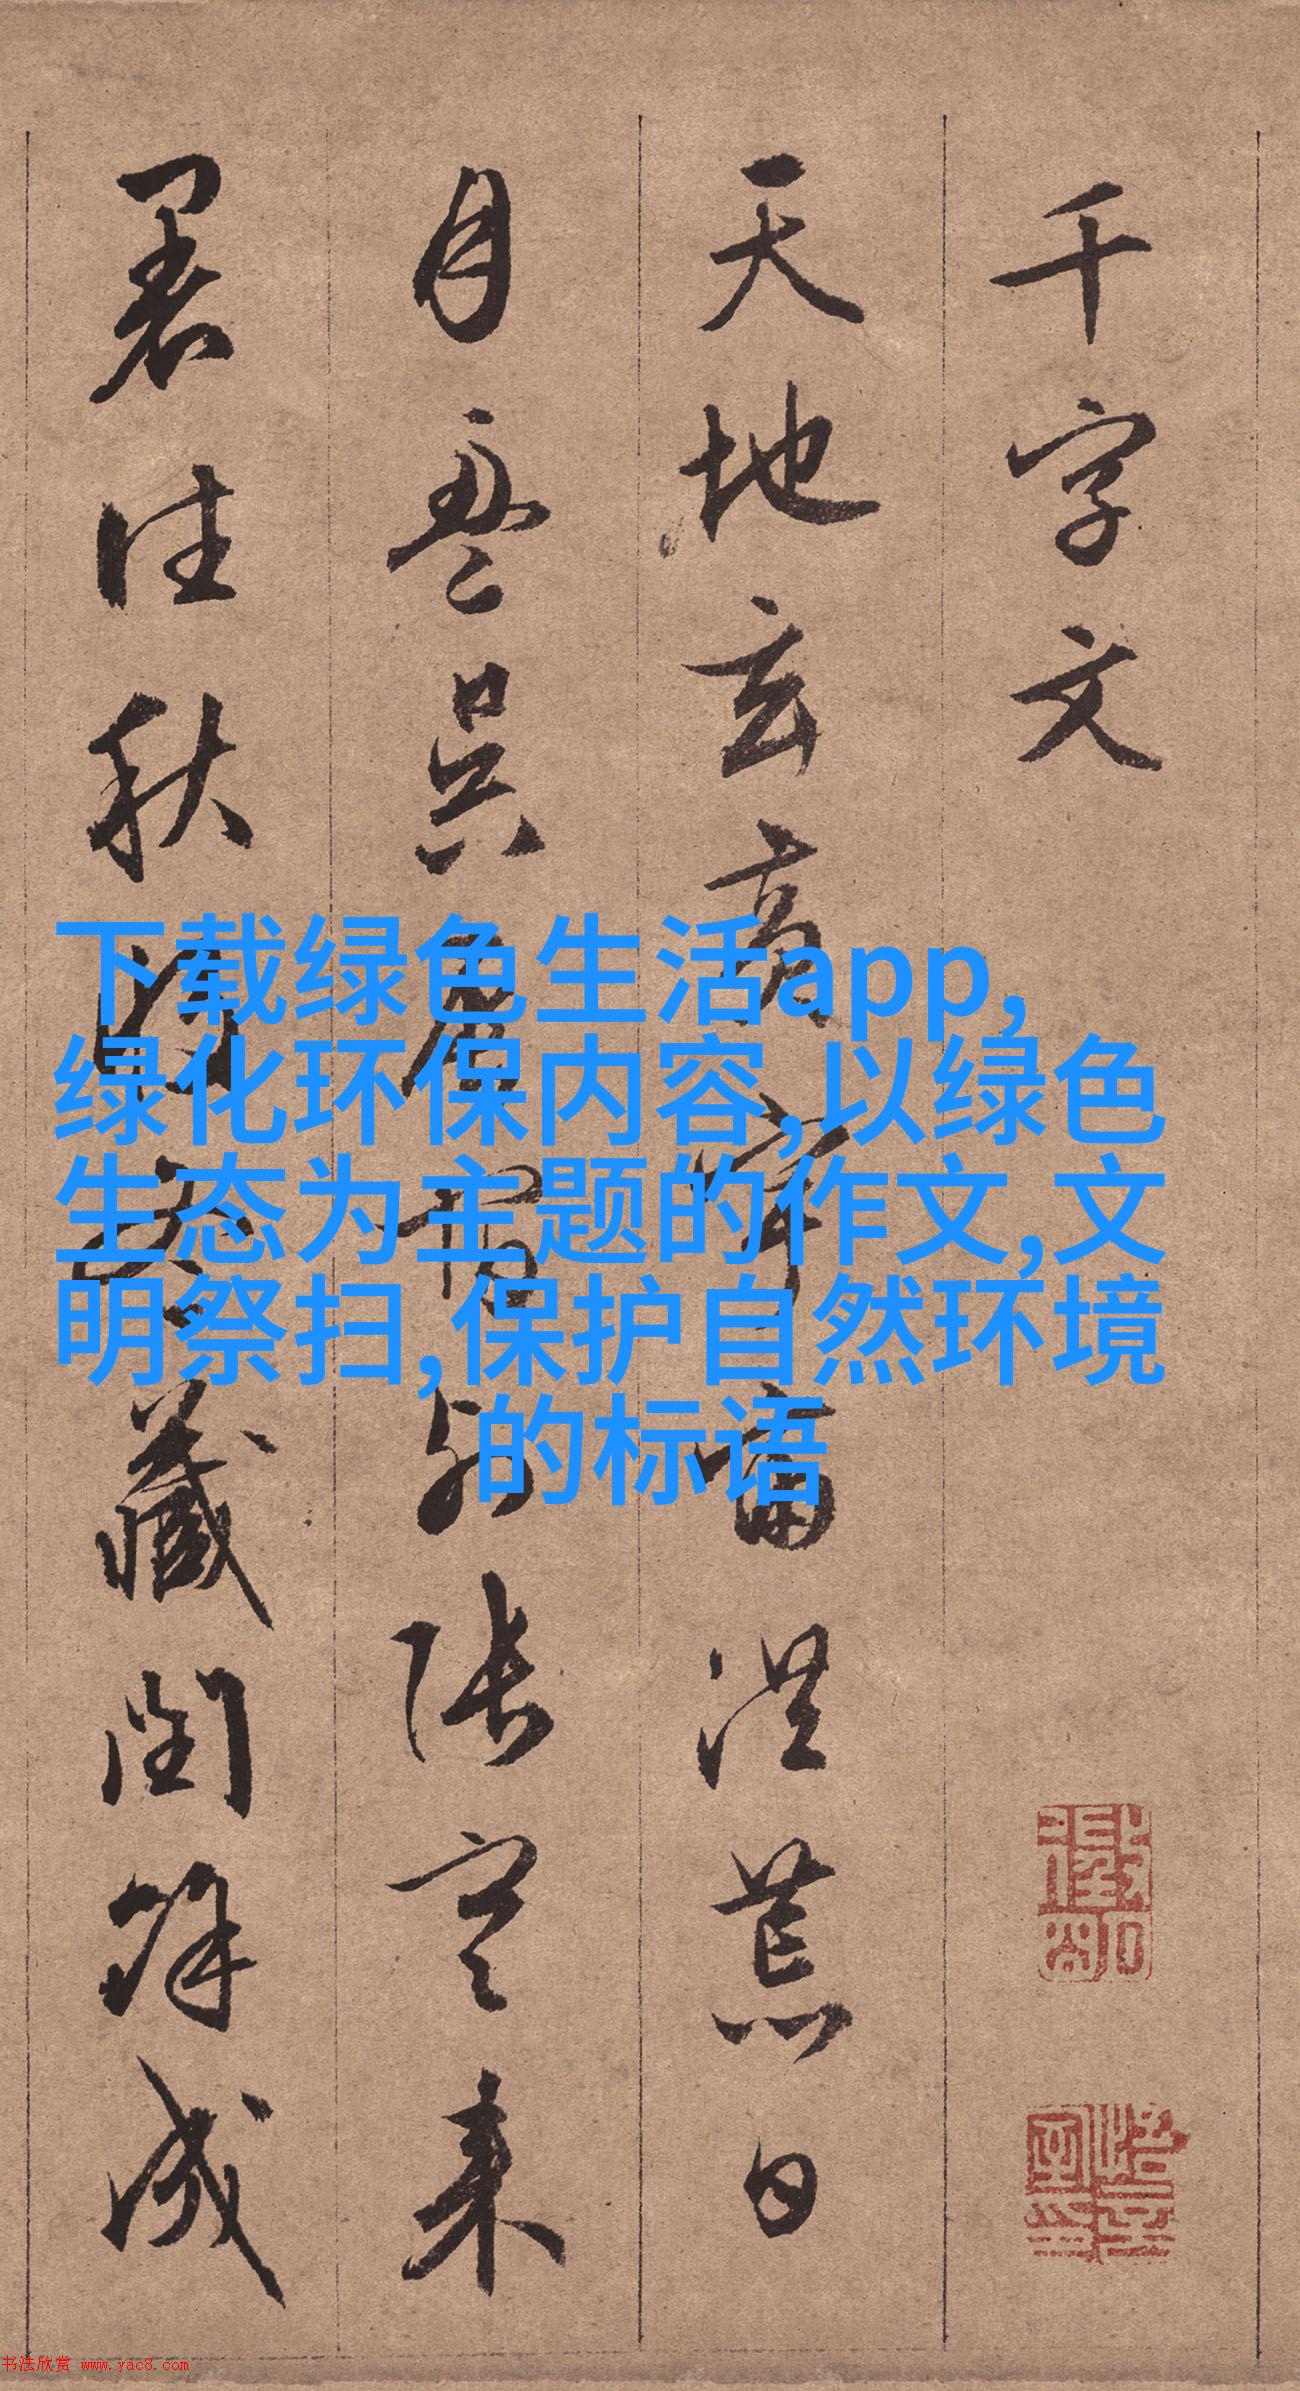 千字文
天地玄黄宇宙洪荒日
月盈昃辰宿列张寒来
暑往秋收冬藏闰馀成
下载绿色生活app,
绿化环保内容,以绿色
生态为主题的作文,文
明祭扫,保护自然环境
的标语
书法欣赏 www.yac8.com